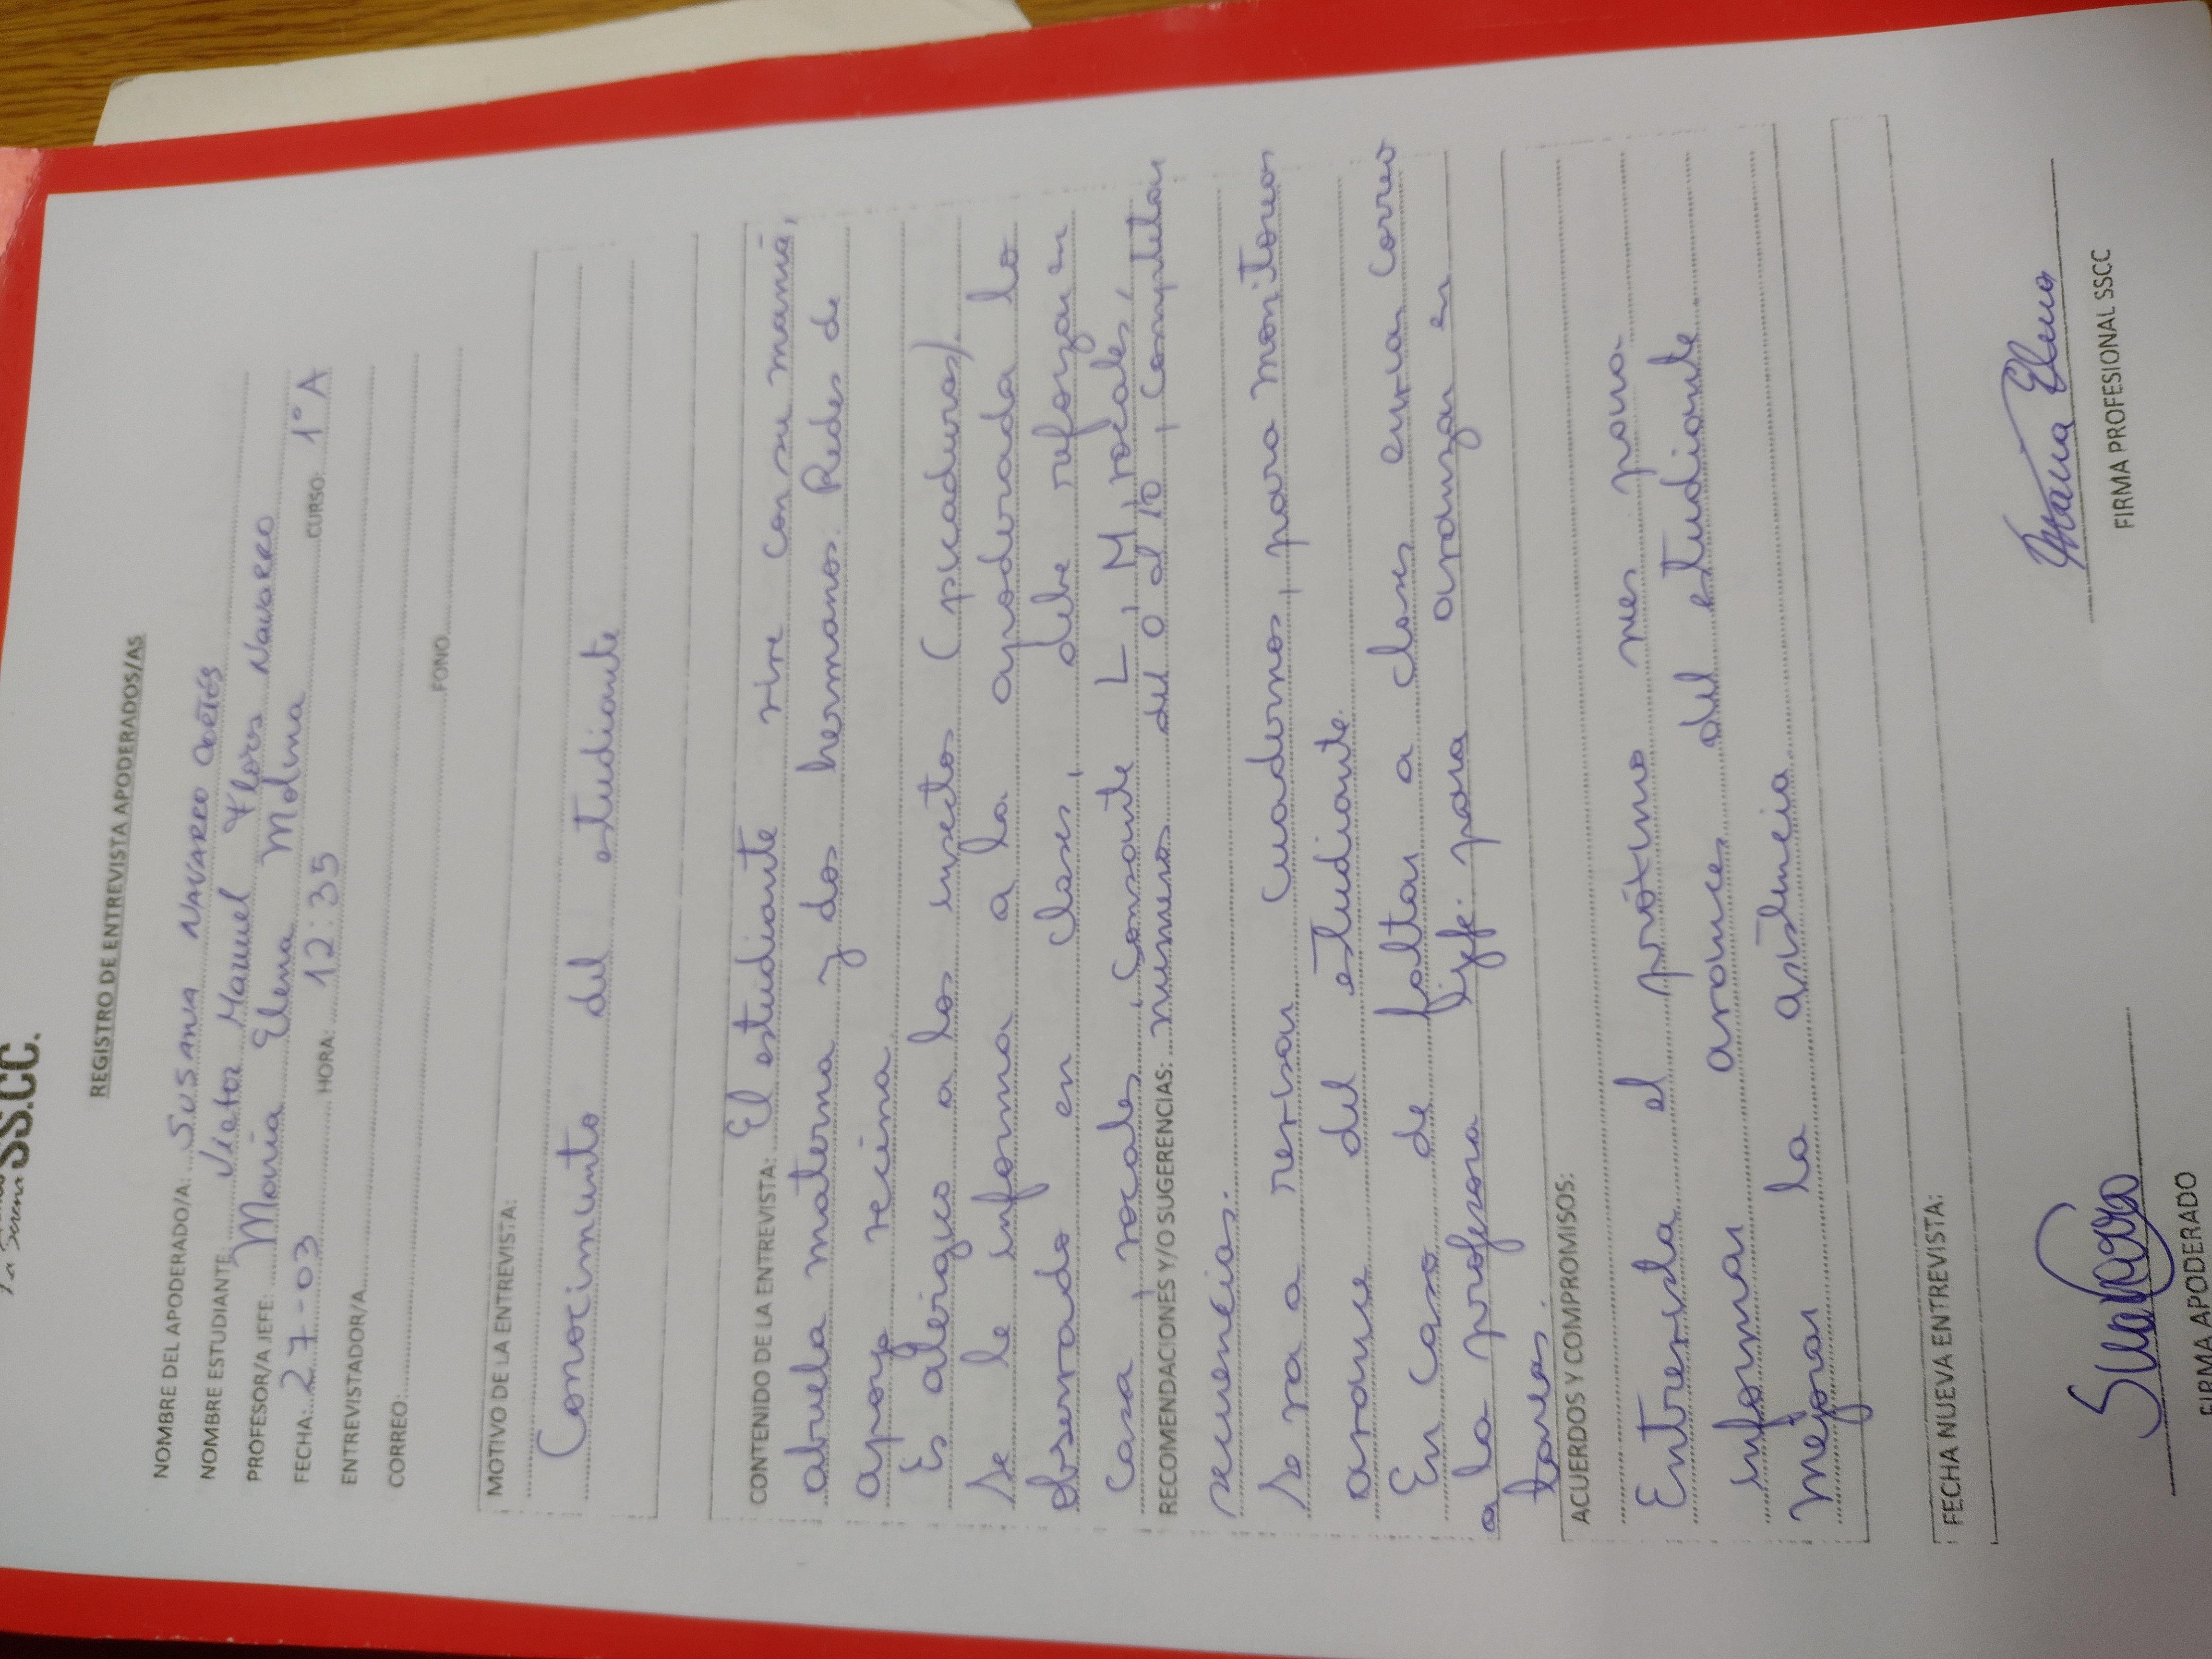 La Serena SS.CC.
REGISTRO DE ENTREVISTA APODERADOS/AS
NOMBRE DEL APODERADO/A: Susana Navarro Cortés
NOMBRE ESTUDIANTE: Victor Manuel Flores Navarro
PROFESOR/A JEFE: María Elena Molina
FECHA: 27-03 HORA: 12:35 CURSO: 1°A
ENTREVISTADOR/A
CORREO: FONO
MOTIVO DE LA ENTREVISTA:
Conocimiento del estudiante
CONTENIDO DE LA ENTREVISTA: El estudiante vive con su mamá,
abuela materna y dos hermanos. Redes de
apoyo vecina.
Es alérgico a los insectos (picaduras).
Se le informa a la apoderada lo
observado en clases, debe reforzar en
casa, vocales, consonante L, M, vocales,
RECOMENDACIONES Y/O SUGERENCIAS: números del 0 al 10, completar
secuencias.
Se va a revisar cuadernos, para monitoreo
avance del estudiante.
En caso de faltar a clases enviar correo
a la profesora jefe para avanzar en
tareas.
ACUERDOS Y COMPROMISOS:
Entrevista el próximo mes para
informar avances del estudiante.
Mejorar la asistencia
FECHA NUEVA ENTREVISTA:
FIRMA APODERADO FIRMA PROFESIONAL SSCC